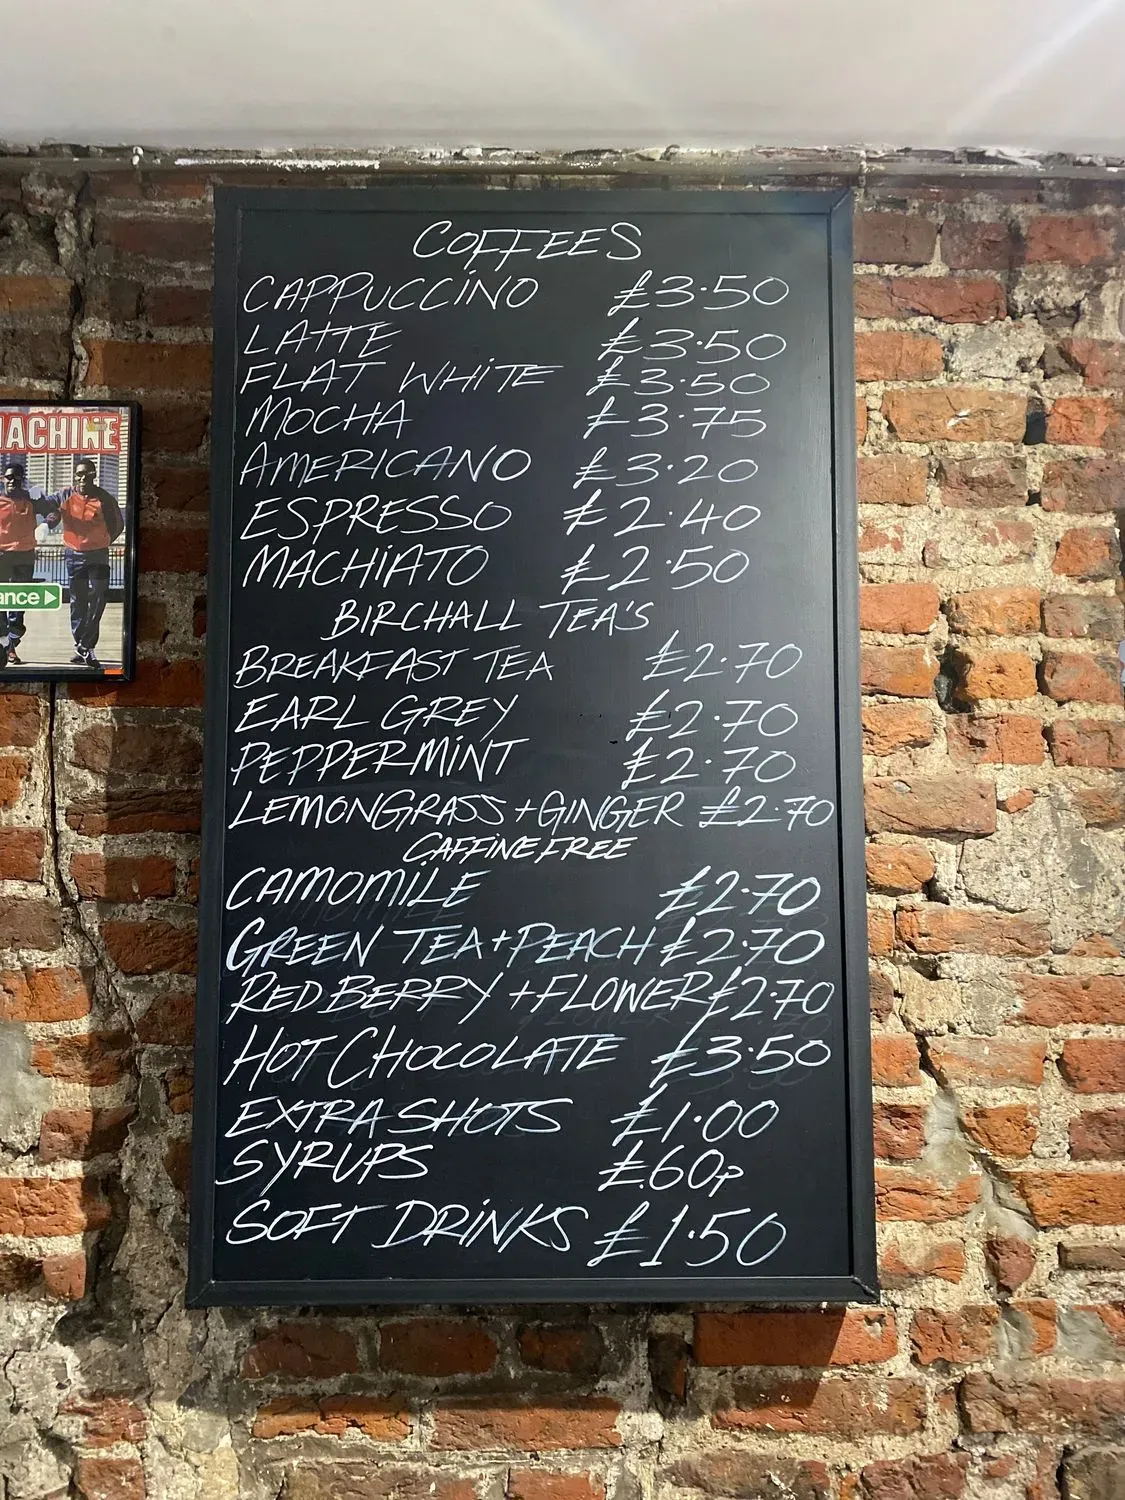 COFFEES
CAPPUCCINO £3.50
LATTE £3.50
FLAT WHITE £3.50
MOCHA £3.75
AMERICANO £3.20
ESPRESSO £2.40
MACHIATO £2.50
BIRCHALL TEA'S
BREAKFAST TEA £2.70
EARL GREY £2.70
PEPPERMINT £2.70
LEMONGRASS + GINGER £2.70
CAFFINE FREE
CAMOMILE £2.70
GREEN TEA + PEACH £2.70
RED BERRY + FLOWER £2.70
HOT CHOCOLATE £3.50
EXTRA SHOTS £1.00
SYRUPS £60p
SOFT DRINKS £1.50
MACHINE
ance